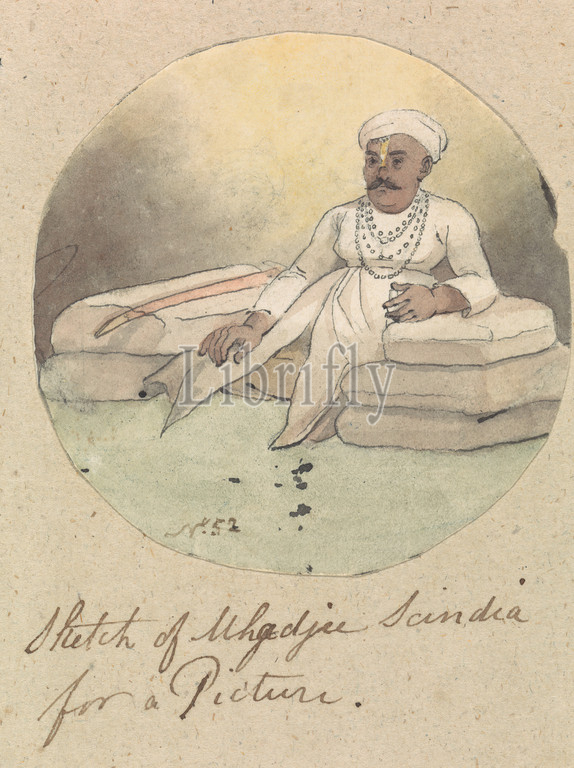 Librifly
No. 52
Sketch of Mhadjee Scindia
for a Picture.